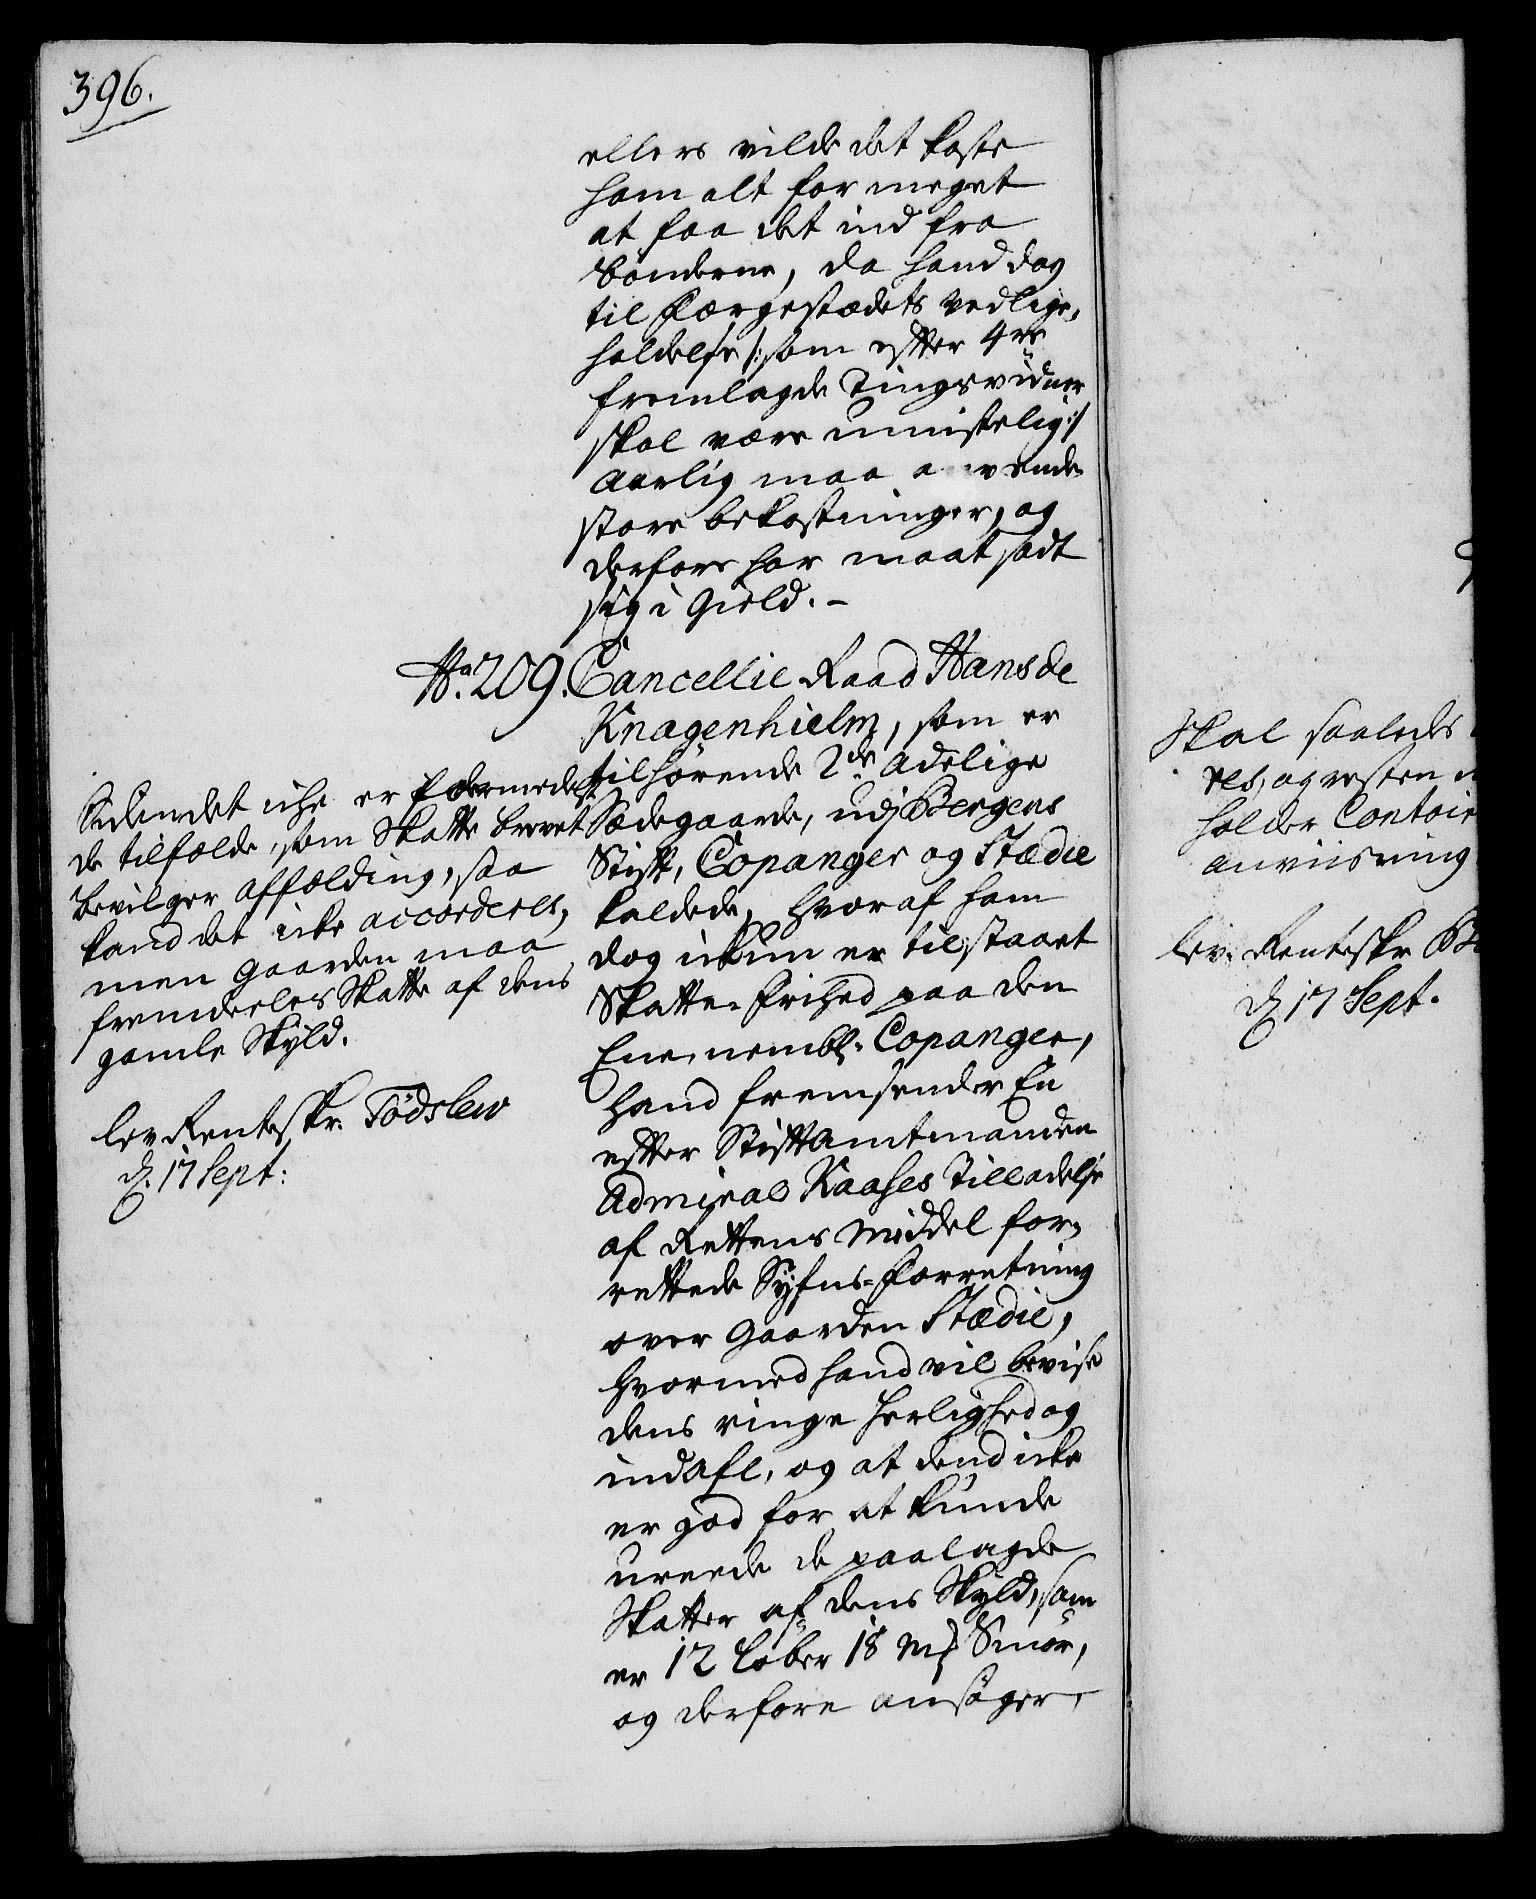 396.
ellers vilde det koste
ham alt for meget
at faa det ind fra
bönderne, da hand dog
til Færgestædets vedlige,
holdelse /: som efter 4re
fremlagde Tingsvidner
skal være umistelig :/
aarlig maa anvende
store bekostninger, og
derfore har maat sadt
sig i Gield. -
No. 209. Cancellie Raad Hans de
Knagenhielm, som er
tilhørende 2de adelige
Sædegaarde, udj Bergens
Stift, Copanger og Stædie
kaldede, hvoraf ham
dog ickun er tilstaaet
Skatte-frihed paa den
Ene, nembl. Copanger,
hand fremsender En
efter Stiftamtmanden
Admiral Kaases Tilladelse
af Rettens Middel for,
rettede Syfns-Forretning
over Gaarden Stædie,
hvormed hand vil bevise
dens ringe herlighed og
indafl, og at dend icke
er god for at kunde
ureede de paalagde
Skatter af dens Skyld, som
er 12 Løber 18 Mk Smør,
og derfore ansøger,
Siden det iche er formedelst
de tilfælde, som Skatte brevet
bevilger affælding, saa
kand det icke accorderes,
men Gaarden maa
fremdeeles Skatte af dens
gamle Skyld.
lev Renteskr. Tödslew
d. 17 Sept:
Skal saaledes
res, og resten
holder Contoir
anviisning
lev. Renteskr
d. 17 Sept.